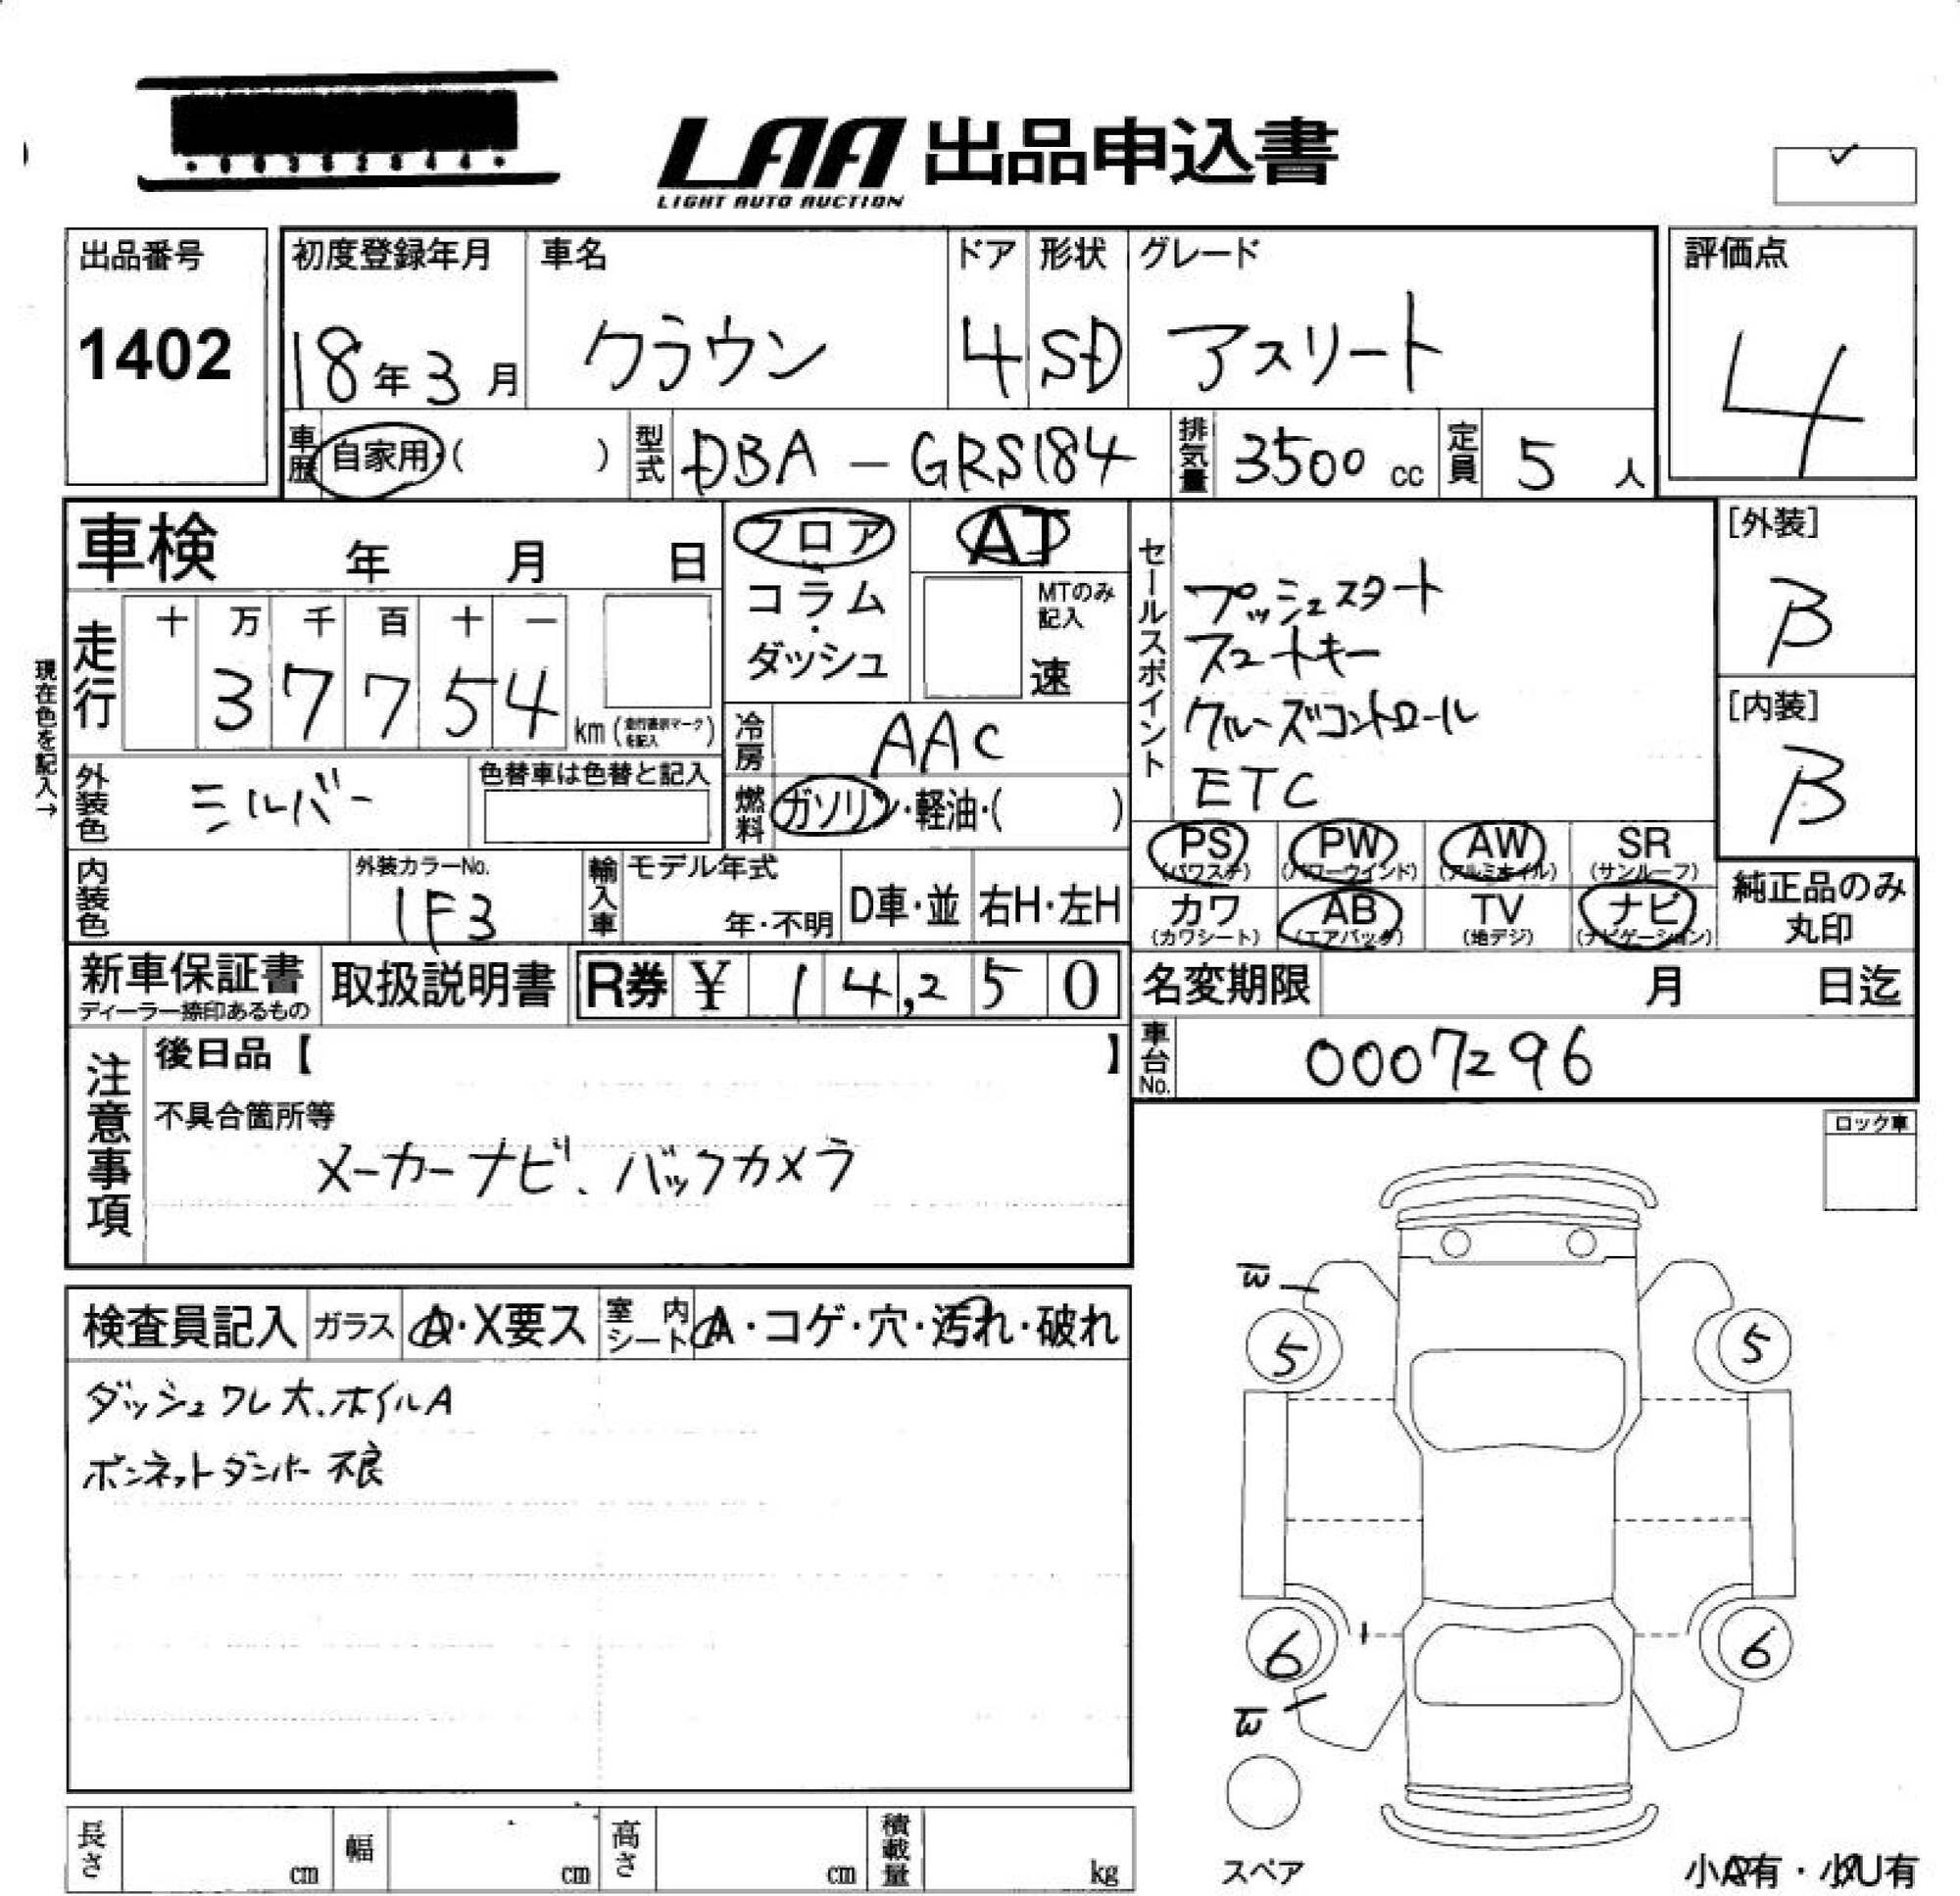 LAA 出品申込書
LIGHT AUTO AUCTION
出品番号
1402
初度登録年月
18年3月
車名
クラウン
ドア
4
形状
SD
グレード
アスリート
評価点
4
車歴 自家用・( )
型式 DBA-GRS184
排気量 3500 cc
定員 5 人
車検 年 月 日
フロア
・
コラム
・
ダッシュ
AT
MTのみ
記入
速
セールスポイント
プッシュスタート
スマートキー
クルーズコントロール
ETC
[外装]
B
[内装]
B
現在色を記入→
走行
十 万 千 百 十 一
3 7 7 5 4
km (走行表示マークを記入)
冷房 AAC
外装色 シルバー
色替車は色替と記入
燃料 ガソリン・軽油・( )
PS (パワステ)
PW (パワーウインド)
AW (アルミホイル)
SR (サンルーフ)
カワ (カワシート)
AB (エアバック)
TV (地デジ)
ナビ (ナビゲーション)
純正品のみ
丸印
内装色
外装カラーNo.
1F3
輸入車
モデル年式
年・不明
D車・並
右H・左H
新車保証書
ディーラー捺印あるもの
取扱説明書
R券 ¥ 14,250
名変期限 月 日迄
車台No. 0007296
注意事項
後日品【 】
不具合箇所等
メーカーナビ、バックカメラ
ロック車
検査員記入
ガラス A・X要ス
室内シート A・コゲ・穴・汚れ・破れ
ダッシュワレ大.ホイルA
ボンネットダンパー不良
W
5
5
6
6
W
スペア
長さ cm
幅 cm
高さ cm
積載量 kg
小A有・小U有